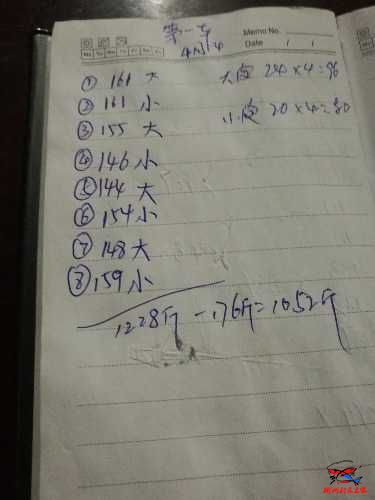 第一车
Memo No.
4月14
Date / /
Mo Tu We Th Fr Sa Su
① 161 大
② 161 小
③ 155 大
④ 146 小
⑤ 144 大
⑥ 154 小
⑦ 148 大
⑧ 159 小
大皮 24×4=96
小皮 20×4=80
1228斤-176斤=1052斤